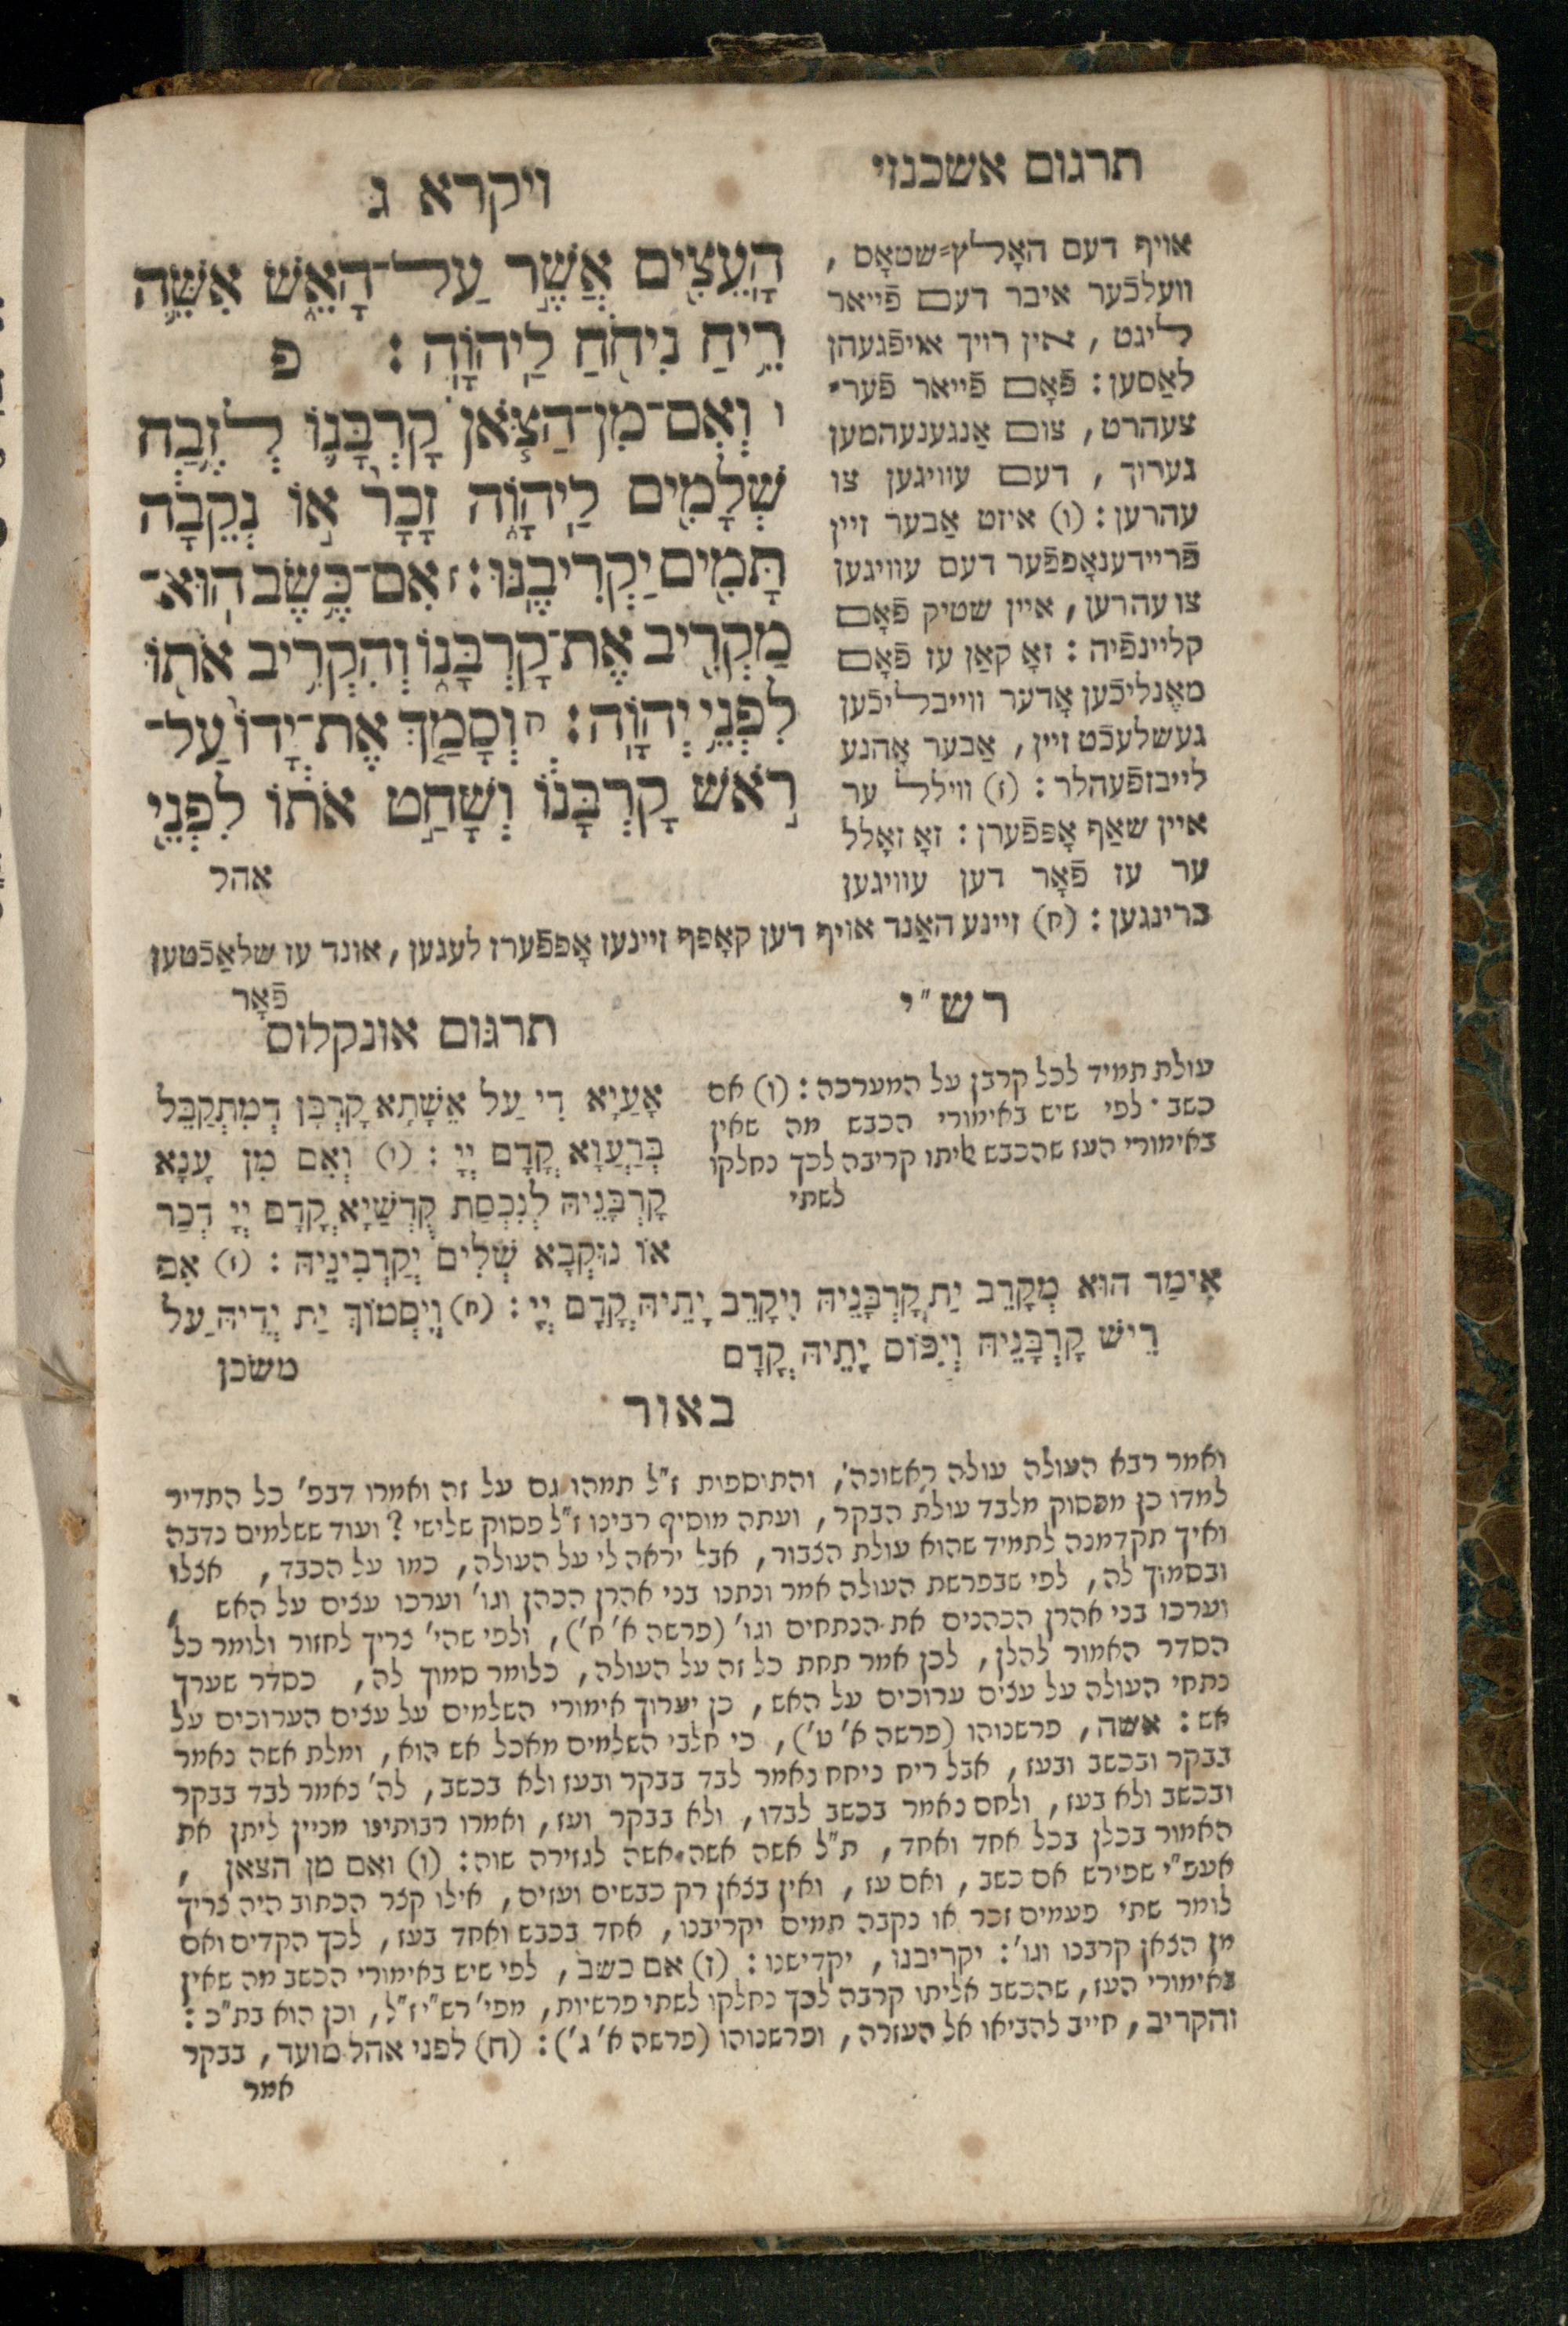 תרגום אשכנזי
ויקרא ג
הָעֵצִ֖ים אֲשֶׁ֣ר עַל־הָאֵ֑שׁ אִשֵּׁ֛ה
רֵ֥יחַ נִיחֹ֖חַ לַֽיהוָֽה׃ פ
ו וְאִם־מִן־הַצֹּ֧אן קָרְבָּנ֛וֹ לְזֶ֥בַח
שְׁלָמִ֖ים לַיהוָ֑ה זָכָר֙ א֣וֹ נְקֵבָ֔ה
תָּמִ֖ים יַקְרִיבֶֽנּוּ׃ ז אִם־כֶּ֥שֶׂב הֽוּא־
מַקְרִ֖יב אֶת־קָרְבָּנ֑וֹ וְהִקְרִ֥יב אֹת֖וֹ
לִפְנֵ֥י יְהוָֽה׃ ח וְסָמַ֤ךְ אֶת־יָדוֹ֙ עַל־
רֹ֣אשׁ קָרְבָּנ֔וֹ וְשָׁחַ֣ט אֹת֔וֹ לִפְנֵ֖י
אהל
אויף דעם האָלץ=שטאָס,
וועלכֿער איבר דעם פֿייאר
ליגט, אין רויך אויפֿגעהן
לאַסען: פֿאָם פֿייאר פֿער=
צעהרט, צום אַנגענעהמען
גערוך, דעם עוויגען צו
עהרען: (ו) איזט אַבער זיין
פֿריידענאָפפֿער דעם עוויגען
צו עהרען, איין שטיק פֿאָם
קליינפֿיה: זאָ קאַן עז פֿאָם
מאֶנליכֿען אָדער ווייבליכֿען
געשלעכֿט זיין, אַבער אָהנע
לייבזפֿעהלר: (ז) ווילל ער
איין שאַף אָפפֿערן: זאָ זאָלל
ער עז פֿאָר דען עוויגען
ברינגען: (ח) זיינע האַנד אויף דען קאָפף זיינעז אָפפֿערז לעגען, אונד עז שלאַכֿטען
פֿאָר
רש״י
עולת תמיד לכל קרבן על המערכה: (ז) אם
כשב. לפי שיש באימורי הכבש מה שאין
באימורי העז שהכבש אליתו קריבה לכך נחלקו
לשתי
תרגום אונקלוס
אָעַיָא דִי עַל אֵשָׁתָא קָרְבָּן דְמִתְקַבֵּל
בְּרַעֲוָא קֳדָם יְיָ: (ו) וְאִם מִן עָנָא
קָרְבָּנֵיהּ לְנִכְסַת קֻדְשַׁיָא קֳדָם יְיָ דְכַר
אוֹ נוּקְבָא שְׁלִים יְקַרְבִינֵיהּ: (ז) אִם
אִימַר הוּא מְקָרֵב יַת קָרְבָּנֵיהּ וִיקָרֵב יָתֵיהּ קֳדָם יְיָ: (ח) וְיִסְמוֹךְ יַת יְדֵיהּ עַל
רֵישׁ קָרְבָּנֵיהּ וְיִכּוֹס יָתֵיהּ קֳדָם
משׁכן
באור
ואמר רבא העולה עולה ראשונה, והתוספות ז״ל תמהו גם על זה ואמרו דבפ׳ כל התדיר
למדו כן מפסוק מלבד עולת הבקר, ועתה מוסיף רבינו ז״ל פסוק שלישי? ועוד ששלמים נדבה
ואיך תקדמנה לתמיד שהוא עולת הצבור, אבל יראה לי על העולה, כמו על הכבד, אצלו
ובסמוך לה, לפי שבפרשת העולה אמר ונתנו בני אהרן הכהן וגו׳ וערכו עצים על האש,
וערכו בני אהרן הכהנים את הנתחים וגו׳ (פרשה א׳ ח׳), ולפי שהי׳ צריך לחזור ולומר כל
הסדר האמור להלן, לכן אמר תחת כל זה על העולה, כלומר סמוך לה, כסדר שערך
נתחי העולה על עצים ערוכים על האש, כן יערוך אימורי השלמים על עצים הערוכים על
אש: אשה, פרשנוהו (פרשה א׳ ט׳), כי חלבי השלמים מאכל אש הוא, ומלת אשה נאמר
בבקר ובכשב ובעז, אבל ריח ניחח נאמר לבד בבקר ובעז ולא בכשב, לה׳ נאמר לבד בבקר
ובכשב ולא בעז, ולחם נאמר בכשב לבדו, ולא בבקר ועז, ואמרו רבותינו מניין ליתן את
האמור בכלן בכל אחד ואחד, ת״ל אשה אשה אשה לגזירה שוה: (ו) ואם מן הצאן,
אעפ״י שפירש אם כשב, ואם עז, ואין בצאן רק כבשים ועזים, אילו קצר הכתוב היה צריך
לומר שתי פעמים זכר או נקבה תמים יקריבנו, אחד בכבש ואחד בעז, לכך הקדים ואם
מן הצאן קרבנו וגו׳: יקריבנו, יקדישנו: (ז) אם כשב, לפי שיש באימורי הכשב מה שאין
באימורי העז, שהכשב אליתו קרבה לכך נחלקו לשתי פרשיות, מפי׳ רש״י ז״ל, וכן הוא בת״כ:
והקריב, חייב להביאו אל העזרה, ופרשנוהו (פרשה א׳ ג׳): (ח) לפני אהל מועד, בבקר
אמר